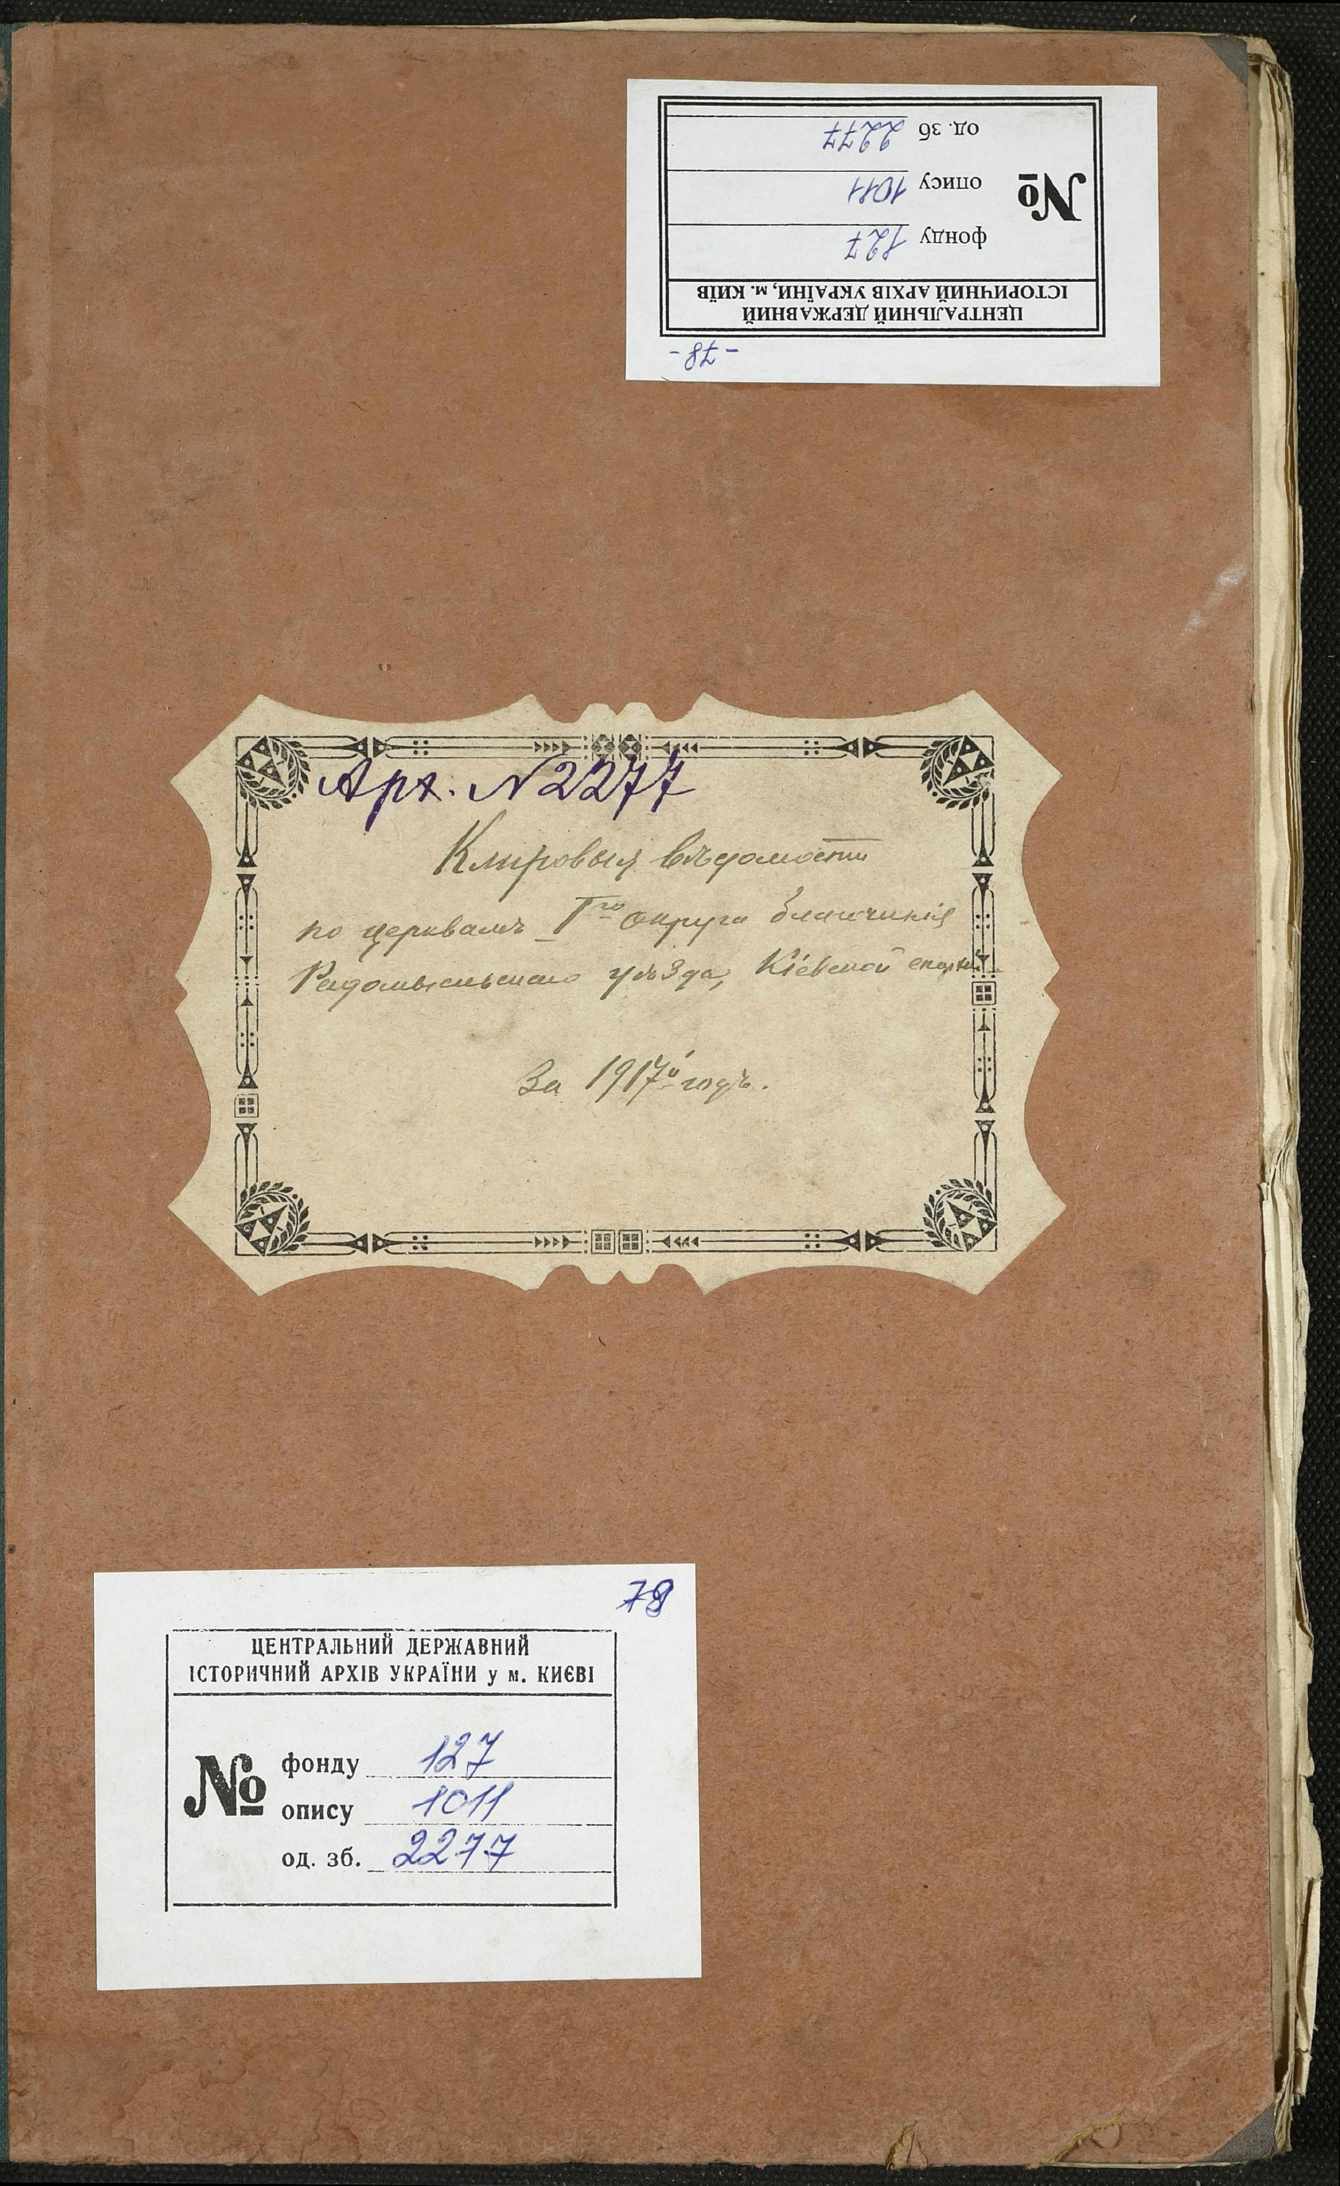 ЦЕНТРАЛЬНИЙ ДЕРЖАВНИЙ
ІСТОРИЧНИЙ АРХІВ УКРАЇНИ, м. КИЇВ
№
фонду 127
опису 1011
од. зб 2277
-78-
Арх. №2277
Клировыя вѣдомости
по церквамъ Іго округа благочинія
Радомысльскаго уѣзда, Кіевской епархіи
За 1917й годъ.
78
ЦЕНТРАЛЬНИЙ ДЕРЖАВНИЙ
ІСТОРИЧНИЙ АРХІВ УКРАЇНИ у м. КИЄВІ
№
фонду 127
опису 1011
од. зб. 2277